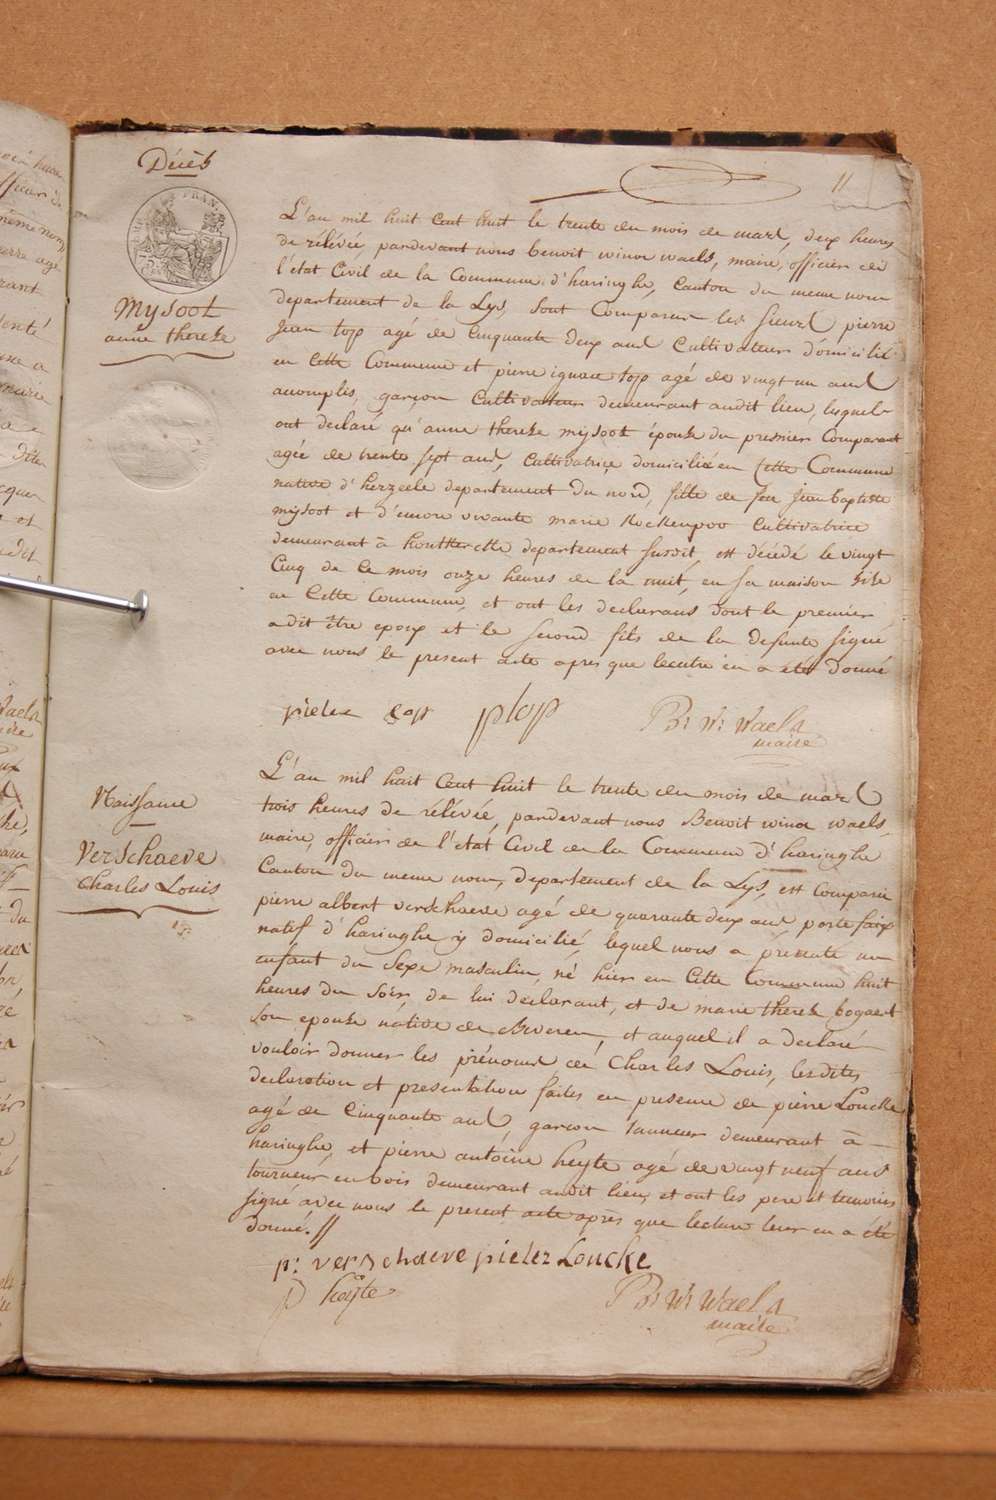 Décès
11
Mysoot
anne therese
L'an mil huit cent huit le trente du mois de mars, deux heures
de rélévée, pardevant nous benoit winoc waels, maire, officier de
l'état Civil de la Commune d'haringhe, Canton du meme nom
departement de la Lys, sont Comparus les sieurs pierre
Jean top agé de Cinquante deux ans Cultivateur domicilié
en Cette Commune et pierre ignace top agé de vingt un ans
accomplis, garçon Cultivateur demeurant audit lieu, lesquels
ont declaré qu'anne therese mysoot épouse du premier Comparant
agée de trente sept ans, Cultivatrice domiciliée en Cette Commune
native d'herzeele departement du nord, fille de feu Jean baptiste
mysoot et d'encore vivante marie Cultivatrice
demeurant à departement susdit, est décédé le vingt
Cinq de Ce mois onze heures de la nuit, en sa maison sise
en Cette Commune, et ont les declarans dont le premier
a dit être epoux et le second fils de la defunte signé
avec nous le present acte apres que lecture en a été donné
pieter top ptop B: W: Waels
maire
Naissance
Verschaeve
Charles Louis
L'an mil huit Cent huit le trente du mois de mars
trois heures de rélévée, pardevant nous Benoit winoc waels,
maire, officier de l'état Civil de la Commune d'haringhe
Canton du meme nom, departement de la Lys, est Comparu
pierre albert verschaeve agé de quarante deux ans, porte faix
natif d'haringhe y domicilié, lequel nous a presenté un
enfant du Sexe masculin, né hier en Cette Commune huit
heures du soir, de lui declarant, et de marie therese bogaert
son epouse native de Beveren, et auquel il a declaré
vouloir donner les prénoms de Charles Louis, lesdites
declaration et presentation faites en presence de pierre Loucke
agé de Cinquante ans, garçon tanneur demeurant à
haringhe, et pierre antoine heyte agé de vingt neuf ans
tourneur en bois demeurant audit lieu, et ont les pere et temoins
signé avec nous le present acte après que lecture leur en a été
donné.//
p: verschaeve pieter Loucke
p heyte B: W: Waels
maire